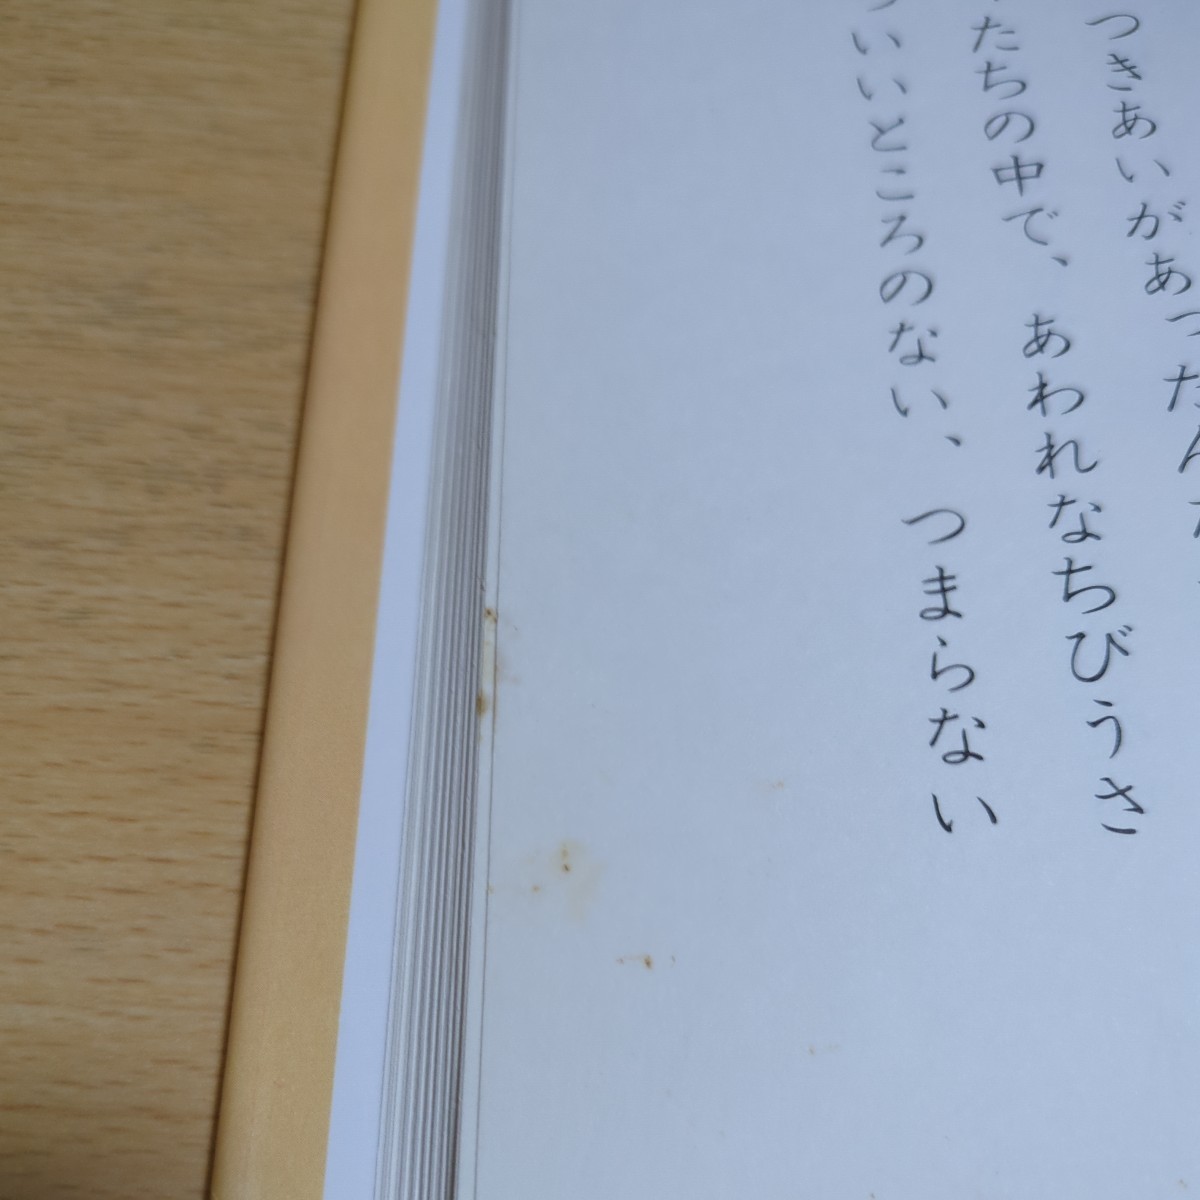 つきあいがあったん
たちの中で、あわれなちびうさ
いいところのない、つまらない